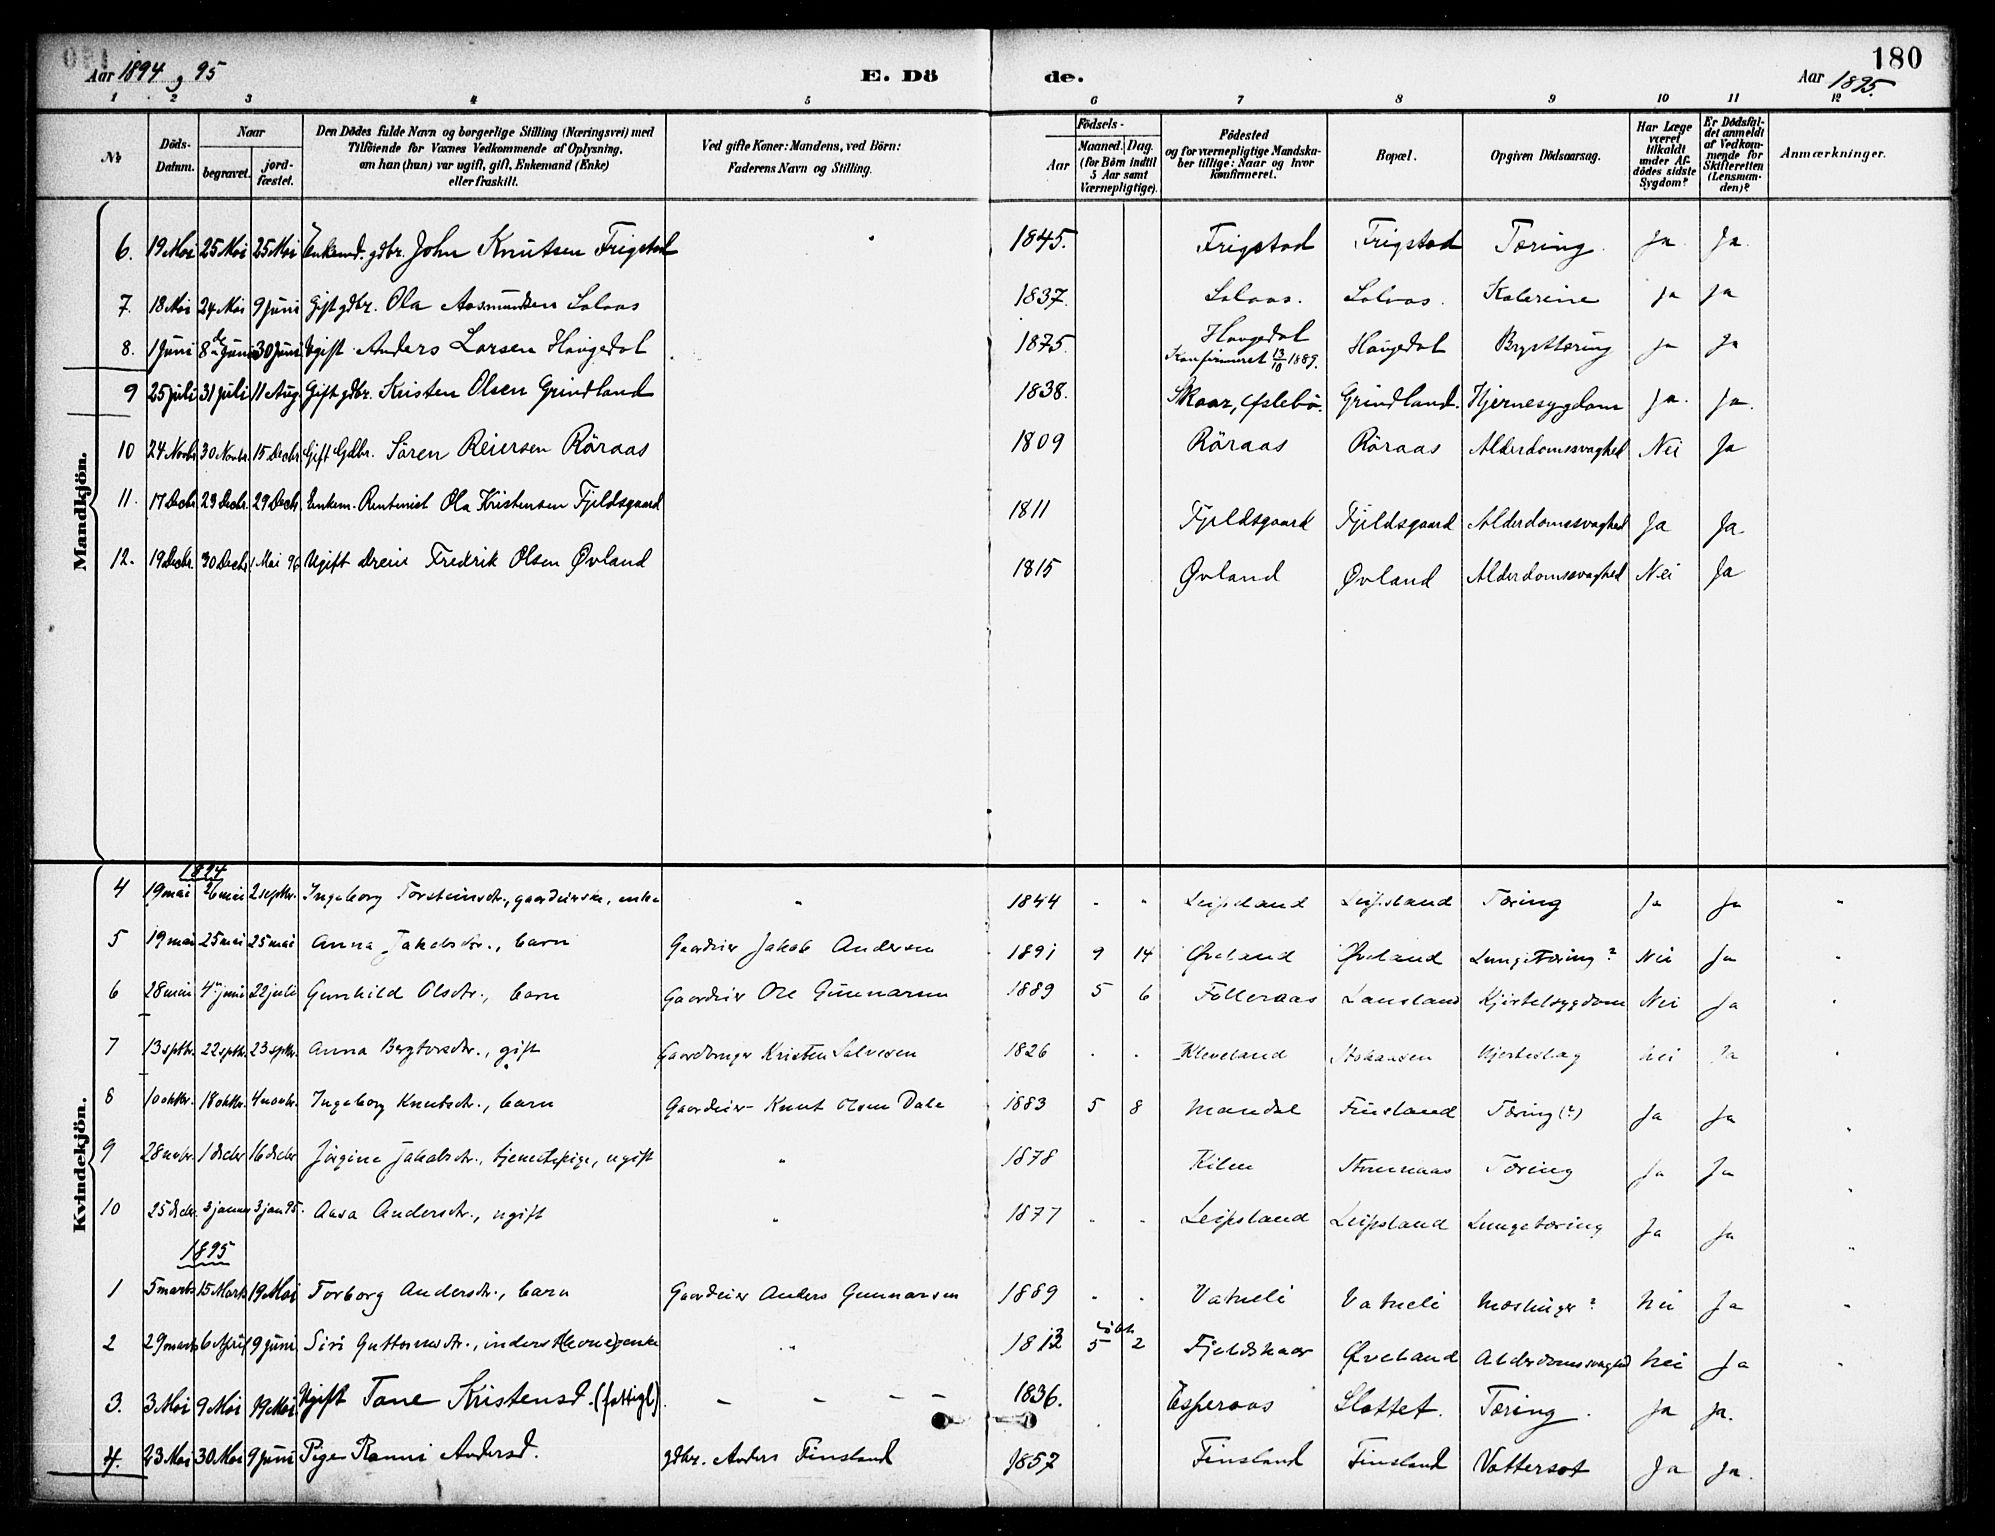 Aar 1894 og 95 E. Dö
de. Aar 1895. 180
1 2 3 4 5 6 7 8 9 10 11 12
№
Döds-Datum.
Naar
begravet.
jordfæstet.
Den Dödes fulde Navn og borgerlige Stilling (Næringsvei) med
Tilföiende for Voxnes Vedkommende af Oplysning,
om han (hun) var ugift, gift, Enkemand (Enke)
eller fraskilt.
Ved gifte Koner: Mandens, ved Börn:
Faderens Navn og Stilling.
Födsels-
Aar
Maaned. Dag.
(for Börn indtil
5 Aar samt
Værnepligtige).
Födested
og for værnepligtige Mandskaber tillige: Naar og hvor
konfirmeret.
Bopæl.
Opgiven Dödsaarsag.
Har Læge
været
tilkaldt
under Afdödes sidste
Sygdom?
Er Dödsfaldet anmeldt
af Vedkommende for
Skifteretten
(Lensmanden)?
Anmærkninger.
Mandkjön.
6. 19 Mai 25 Mai 25 Mai Enkemd. gdbr. John Knutsen Frigstad 1845. Frigstad Frigstad Tæring. Ja Ja.
7. 18 Mai 24 Mai 9 Juni Gift gdbr. Ola Aasmundsen Solaas 1837. Solaas. Solaas. Ja Ja
8. 1 Juni 8de Juni 30 Juni Ugift Anders Larsen Haugedal 1875. Haugedal Konfirmeret 13/10 1889. Haugedal Brysttæring Ja Ja
9 25 juli 31 juli 11 Aug. Gift gdbr. Kristen Olsen Grindland 1838. Skaar, Øslebø. Grindland. Hjernesygdom Ja. Ja.
10 24 Novbr 30 Novbr. 15 Decbr Gift Gdbr. Sören Reiersen Röraas 1809 Röraas Röraas Alderdomssvaghed Nei Ja
11. 17 Decbr 23 Decbr. 29 Decbr. Enkem. Rentenist Ola Kristensen Fjeldsgaard 1811 Fjeldsgaard Fjeldsgaard Alderdomssvaghed Ja Ja
12. 19 Decbr. 30 Decbr. 1 Mai 96 Ugift Dreier Fredrik Olsen Øvland 1815 Øvland Øvland Alderdomssvaghed Nei Ja
Kvindekjön.
1894
4 19 mai 26 mai 2 septbr. Ingeborg Torsteinsdtr., enke " 1844 - " Leipsland Leipsland Tæring Ja Ja "
5 19 mai 25 mai 25 mai Anna Jakobsdtr., barn Gaardeier Jakob Andersen 1891 9 14 Øveland Øveland Lungetæring? Nei Ja "
6 28 mai 4de juni 22 juli Gunhild Olsdtr., barn Gaardeier Ole Gunnarsen 1889 5 6 Folleraas Lansland Kjertelsygdom Nei Ja
7 13 septbr. 22 septbr. 23 septbr. Anna Bergtorsdtr., gift Kristen Salvesen 1826 . . Kleveland Hjerteslag Nei Ja
8 10 oktbr. 18 oktbr. 4 novbr. Ingeborg Knutsdtr., barn Gaardeier Knut Olsen Dale 1883 5 8 Mandal Finsland Tæring (?) Ja Ja
9 28 novbr. 1 decbr 16 decbr Jörgine Jakobsdtr., tjenestepige, ugift " 1878 Kilen Tæring Ja Ja "
10 25 decbr. 3 januar 3 jan 95. Aasa Andersdtr., ugift " 1877 - - Leipsland Leipsland Lungetæring Ja Ja "
1895
1 5 marts 15 Marts 19 Mai Torborg Andersdtr., barn Gaardeier Anders Gunnarsen 1889 . . Vatneli Vatneli Meslinger? Nei Ja "
2 29 marts 6 April 9 juni Siri Guttormsdtr., inderst(kone) enke " 1812 5 2 Fjeldskaar Øveland Alderdomssvaghed Nei Ja
3. 3 Mai 9 Mai 19 Mai Ugift Tane Kristensd. (fattigl) - - - - 1836. Esperaas Slottet. Tæring. Ja Ja.
4. 23 Mai 30 Mai 9 Juni Pige Ranni Andersd. gdbr. Anders Finsland 1857 Finsland Finsland Vattersot Ja Ja.